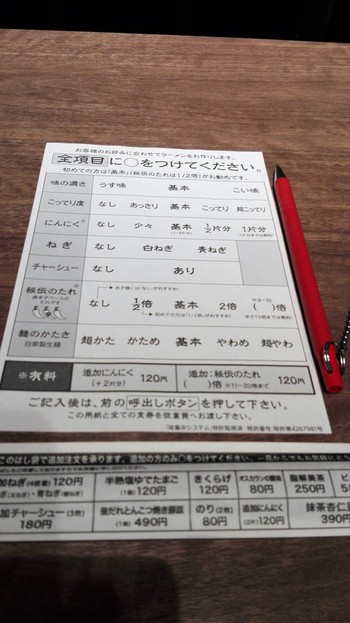 お客様のお好みに合わせてラーメンをお作りします。
全項目に○をつけてください。
初めての方は「基本」(秘伝のたれは1/2倍)がお勧めです。
味の濃さ うす味 基本 こい味
こってり度 なし あっさり 基本 こってり 超こってり
にんにく なし 少々 基本 1/2片分 1片分
ねぎ なし 白ねぎ 青ねぎ
チャーシュー なし あり
秘伝のたれ なし 1/2倍 基本 2倍 ( )倍
初めての方は「1/2倍」がおすすめ
麺のかたさ 超かた かため 基本 やわめ 超やわ
自家製生麺
※有料 追加にんにく (+2片分) 120円 追加:秘伝のたれ ( )倍 ※11~20倍まで 120円
ご記入後は、前の呼出しボタンを押して下さい。
この用紙と全ての食券を従業員へお渡し下さい。
「味集中システム」特許取得済 特許番号:特許第4267981号
このはし袋で追加注文を承ります。追加の方のみ○をつけてください。
加ねぎ(4倍量) 120円 半熟塩ゆでたまご (1個) 120円 きくらげ 120円 オスカランの酸味 80円 250円
・青ねぎ
加チャーシュー(3枚) 180円 釜だれとんこつ焼き豚皿 (1皿) 490円 のり(2枚) 80円 追加にんにく (2片) 120円 抹茶杏仁豆 390円